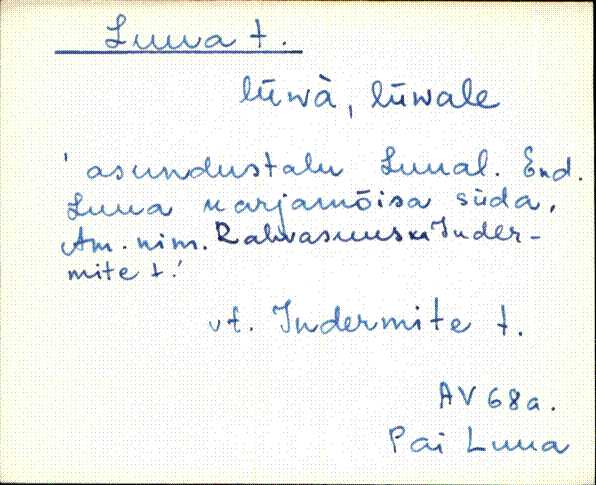 Luua t.
lūwà, lūwale
' asundustalu Luual. End.
Luua karjamõisa süda.
Am. nim. Rahvasuus ka Inder-
mite t.'
vt. Indermite t.
AV 68a.
Pai Luua